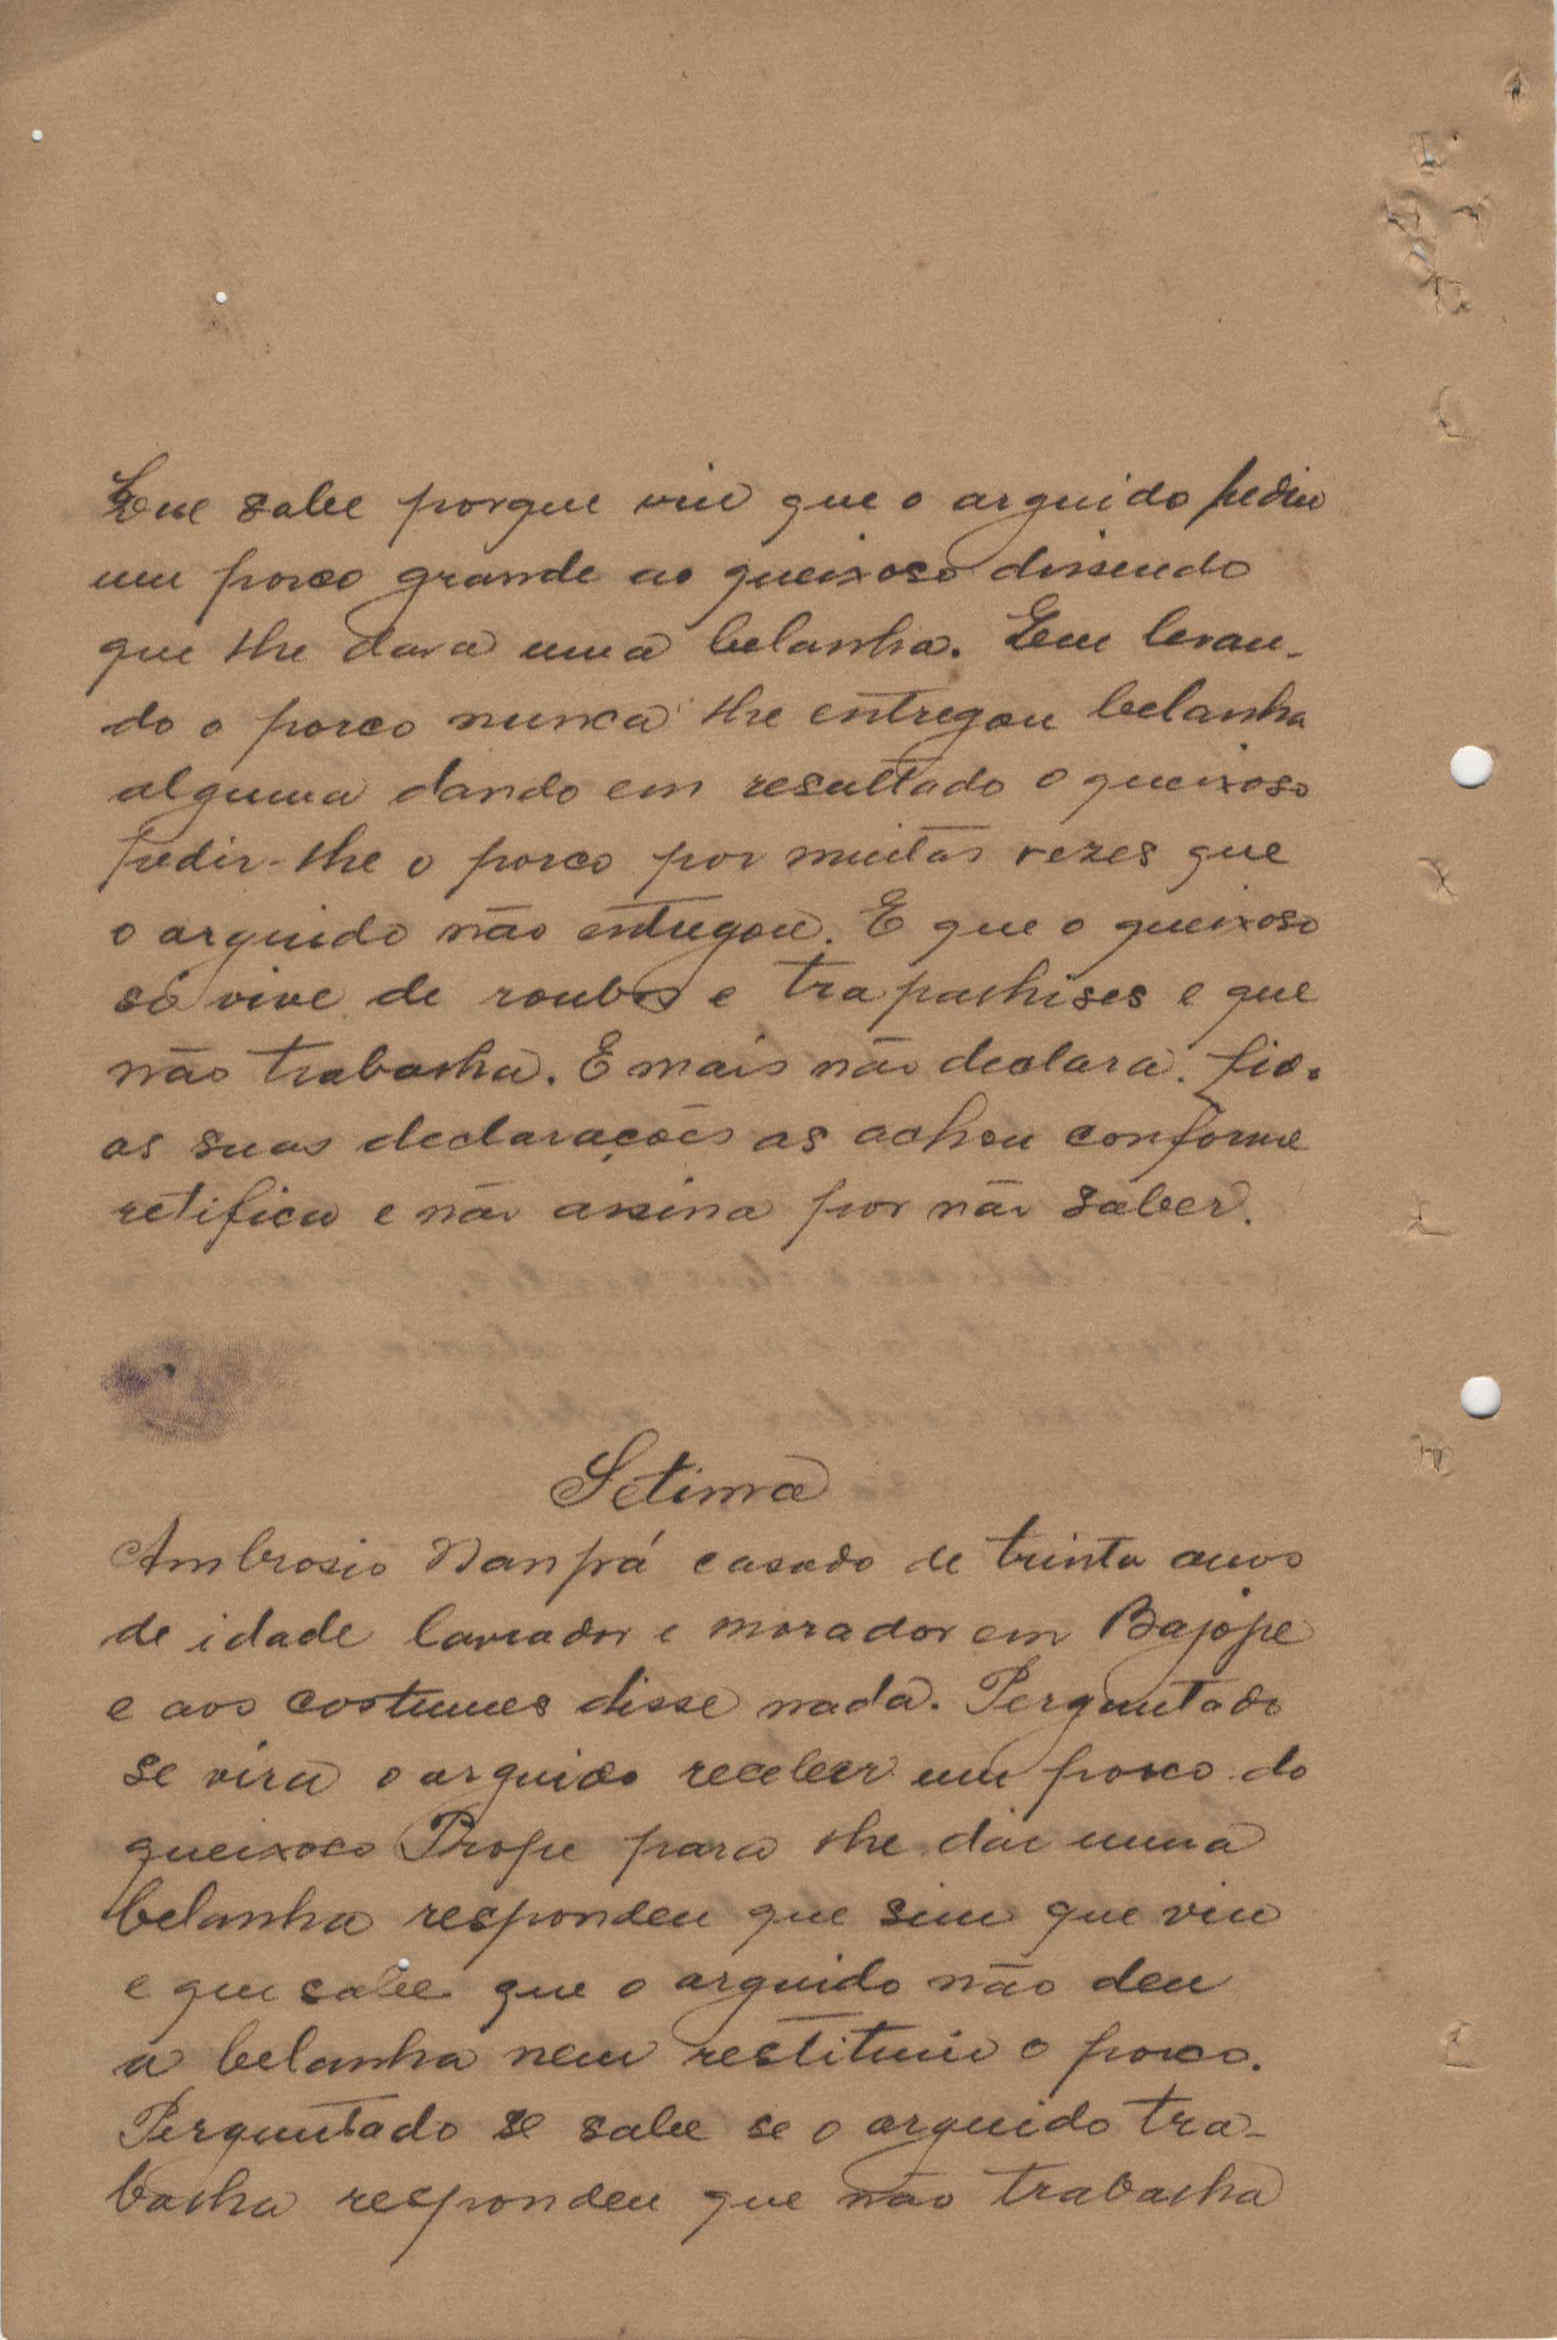 Que sabe porque viu que o arguido pediu
um porco grande ao queixoso dissendo
que lhe dava uma belanha. Em levan-
do o porco nunca lhe entregou belanha
alguma dando em resultado o queixoso
pedir-lhe o porco por muitas vezes que
o arguido não entregou. E que o queixoso
só vive de roubos e trapalhises e que
não trabalha. E mais não declara.
as suas declarações as achou conforme
retificu e não assina por não saber.
Setima
Ambrosio Nanpá casado de trinta anos
de idade lavrador e morador em Bajope
e aos costumes disse nada. Perguntado
se vira o arguido receber um porco do
queixoso Prope para lhe dar numa
belanha respondeu que sim que viu
e que sabe que o arguido não deu
a belanha nem restituiu o porco.
Perguntado se sabe se o arguido tra-
balha respondeu que não trabalha